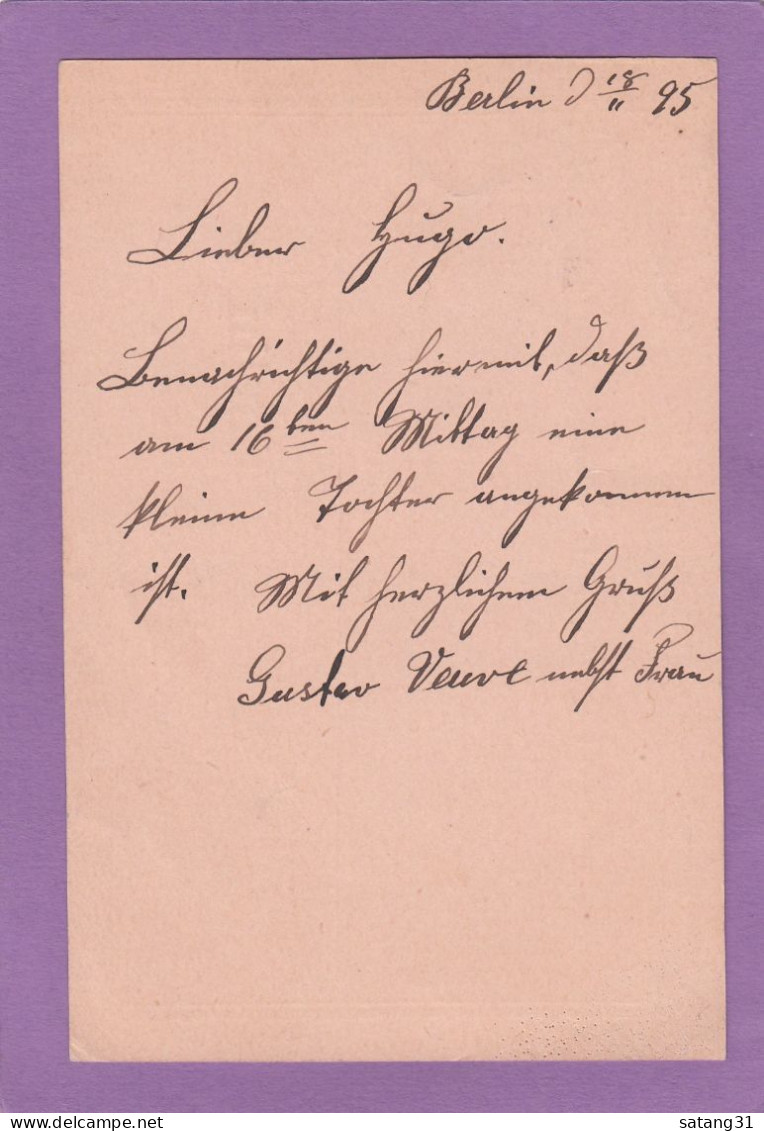 Berlin d 18/11 95
Lieber Hugo.
Benachrichtige hiermit, daß
am 16ten Mittag eine
kleine Tochter angekommen
ist. Mit herzlichem Gruß
Gustav Veuve nebst Frau
delcampe.net
satang31